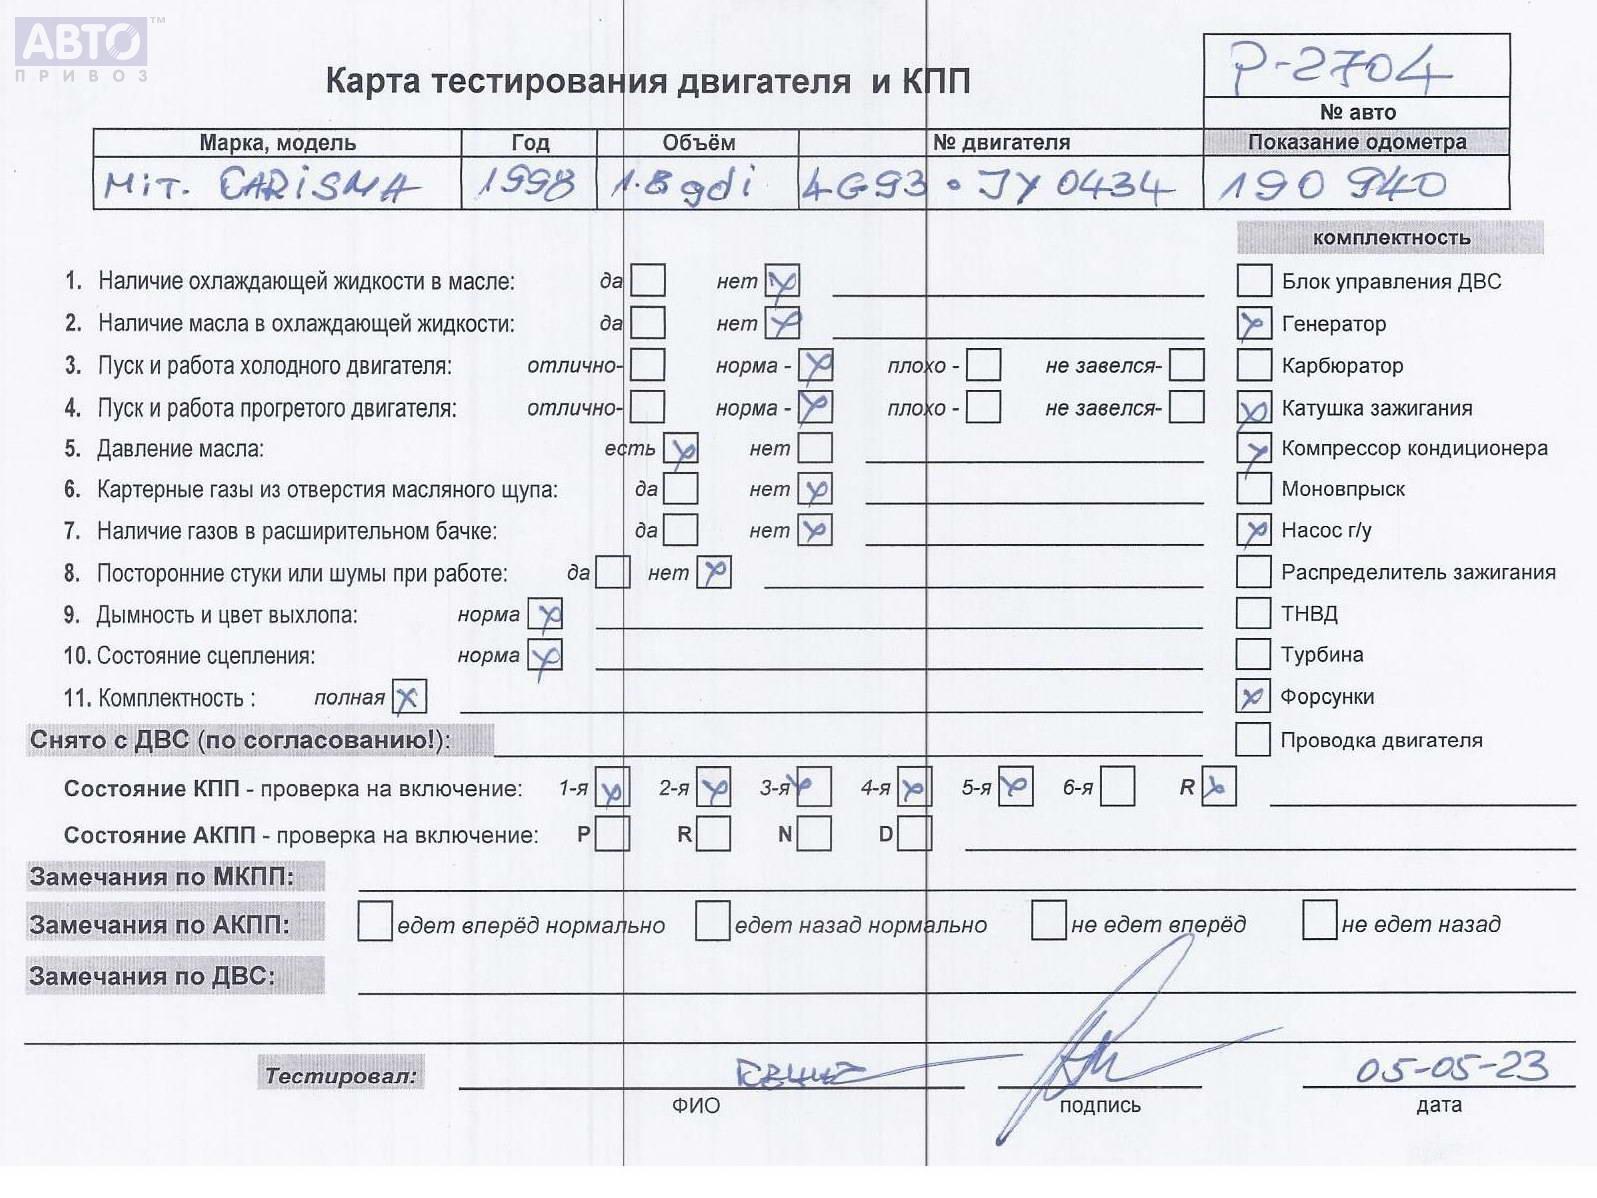 АВТО™
ПРИВОЗ
Р-2704
Карта тестирования двигателя и КПП
№ авто
Марка, модель Год Объём № двигателя Показание одометра
Mit. CARISMA 1998 1.8 gdi 4G93 · JY0434 190 940
комплектность
1. Наличие охлаждающей жидкости в масле: да нет Блок управления ДВС
2. Наличие масла в охлаждающей жидкости: да нет Генератор
3. Пуск и работа холодного двигателя: отлично- норма - плохо - не завелся- Карбюратор
4. Пуск и работа прогретого двигателя: отлично- норма - плохо - не завелся- Катушка зажигания
5. Давление масла: есть нет Компрессор кондиционера
6. Картерные газы из отверстия масляного щупа: да нет Моновпрыск
7. Наличие газов в расширительном бачке: да нет Насос г/у
8. Посторонние стуки или шумы при работе: да нет Распределитель зажигания
9. Дымность и цвет выхлопа: норма ТНВД
10. Состояние сцепления: норма Турбина
11. Комплектность : полная Форсунки
Снято с ДВС (по согласованию!): Проводка двигателя
Состояние КПП - проверка на включение: 1-я 2-я 3-я 4-я 5-я 6-я R
Состояние АКПП - проверка на включение: P R N D
Замечания по МКПП:
Замечания по АКПП: едет вперёд нормально едет назад нормально не едет вперёд не едет назад
Замечания по ДВС:
Тестировал: 05-05-23
ФИО подпись дата